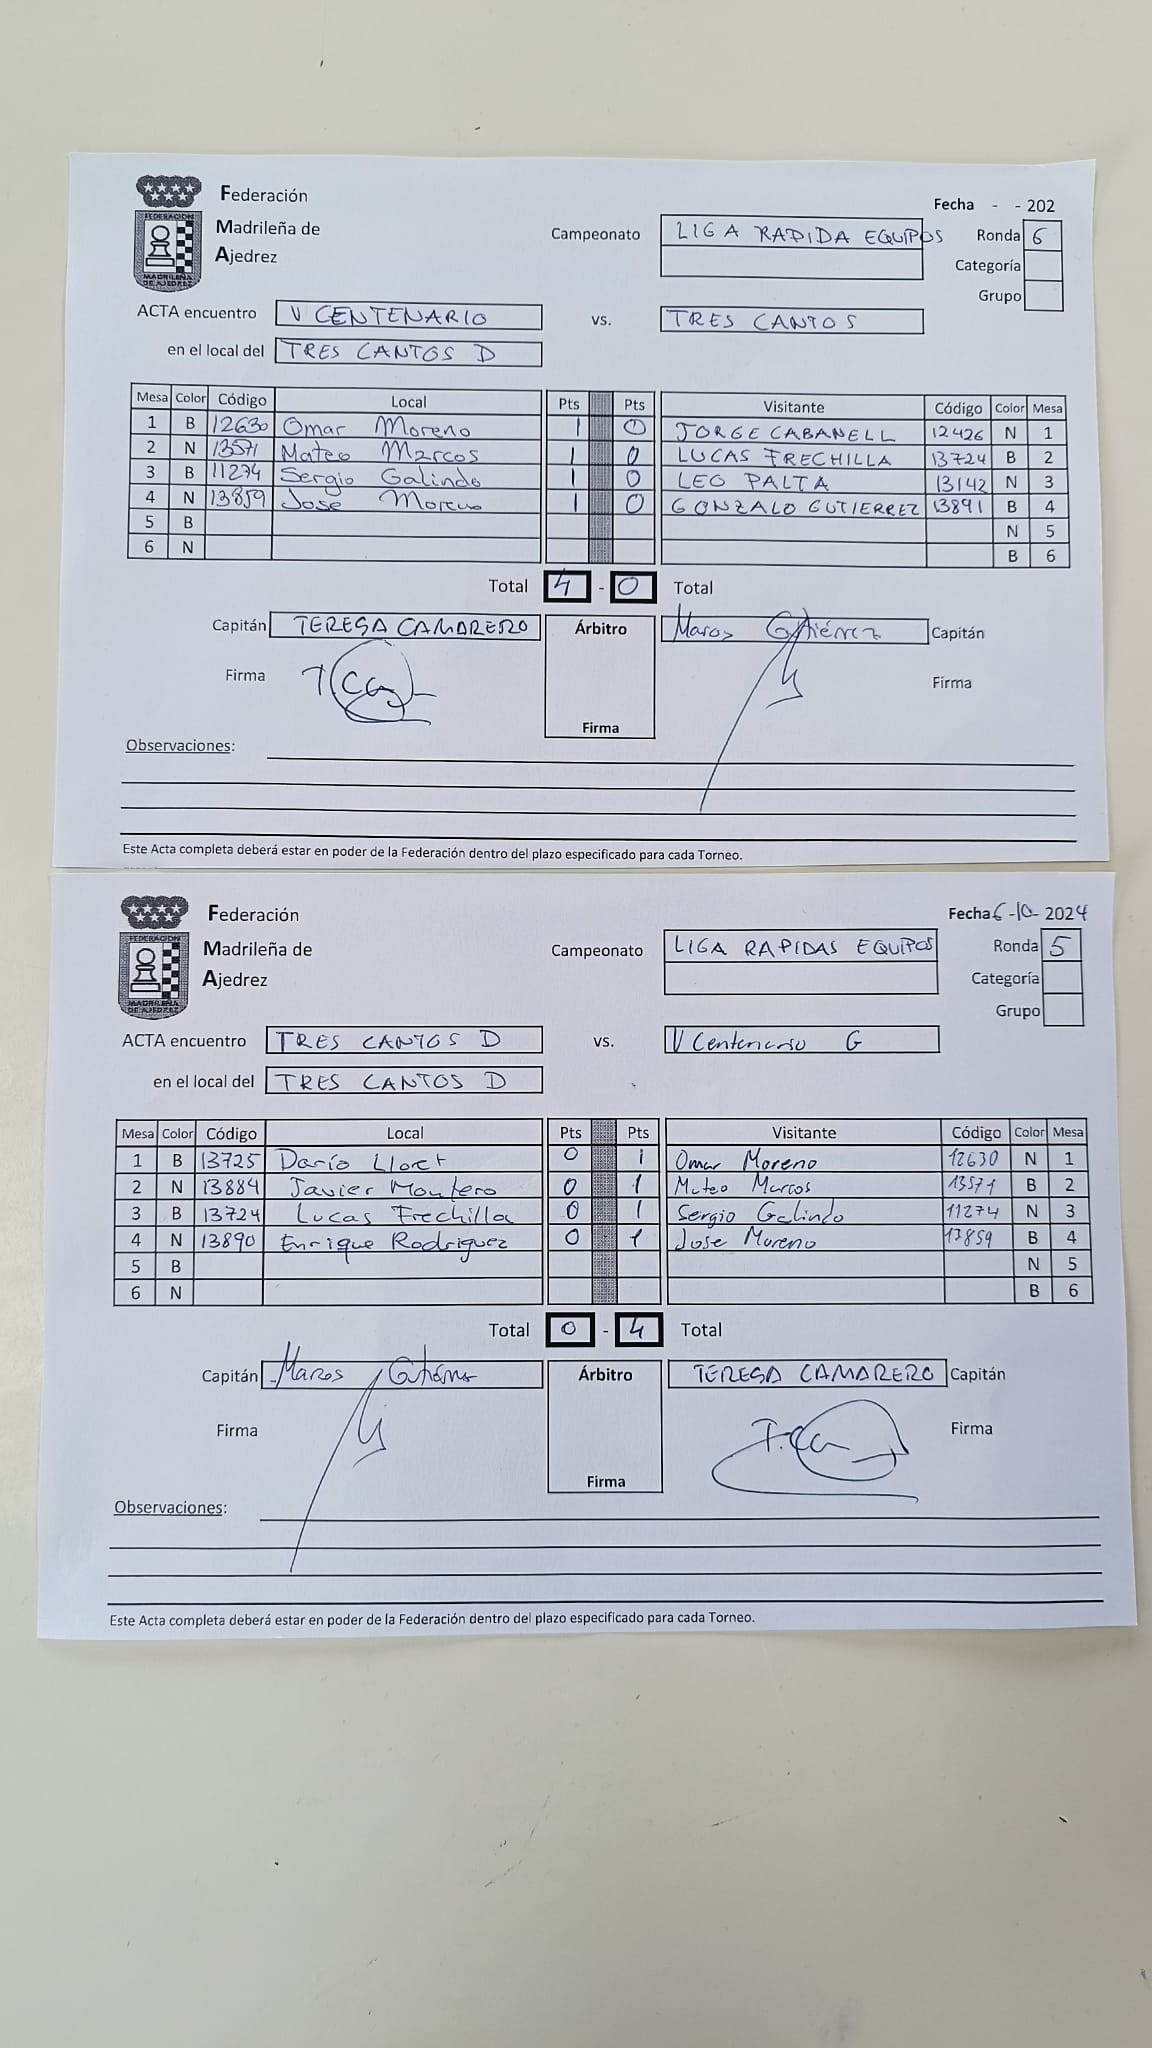 Federación
Madrileña de
Ajedrez
FEDERACION
MADRILEÑA
DE AJEDREZ
Fecha - - 202
Campeonato LIGA RAPIDA EQUIPOS Ronda 6
Categoría
Grupo
ACTA encuentro V CENTENARIO vs. TRES CANTOS
en el local del TRES CANTOS D
Mesa Color Código Local Pts Pts Visitante Código Color Mesa
1 B 12630 Omar Moreno 1 0 JORGE CABANELL 12426 N 1
2 N 13571 Mateo Marcos 1 0 LUCAS FRECHILLA 13724 B 2
3 B 11274 Sergio Galindo 1 0 LEO PALTA 13142 N 3
4 N 13859 Jose Moreno 1 0 GONZALO GUTIERREZ 13891 B 4
5 B N 5
6 N B 6
Total 4 - 0 Total
Capitán TERESA CAMARERO Árbitro Marcos Gutiérrez Capitán
Firma Firma
Firma
Observaciones:
Este Acta completa deberá estar en poder de la Federación dentro del plazo especificado para cada Torneo.
Federación
Madrileña de
Ajedrez
FEDERACION
MADRILEÑA
DE AJEDREZ
Fecha 6-10- 2024
Campeonato LIGA RAPIDAS EQUIPOS Ronda 5
Categoría
Grupo
ACTA encuentro TRES CANTOS D vs. V Centenario G
en el local del TRES CANTOS D
Mesa Color Código Local Pts Pts Visitante Código Color Mesa
1 B 13725 Darío Lloret 0 1 Omar Moreno 12630 N 1
2 N 13884 Javier Montero 0 1 Mateo Marcos 13571 B 2
3 B 13724 Lucas Frechilla 0 1 Sergio Galindo 11274 N 3
4 N 13890 Enrique Rodriguez 0 1 Jose Moreno 13859 B 4
5 B N 5
6 N B 6
Total 0 - 4 Total
Capitán Marcos Gutiérrez Árbitro TERESA CAMARERO Capitán
Firma Firma
Firma
Observaciones:
Este Acta completa deberá estar en poder de la Federación dentro del plazo especificado para cada Torneo.